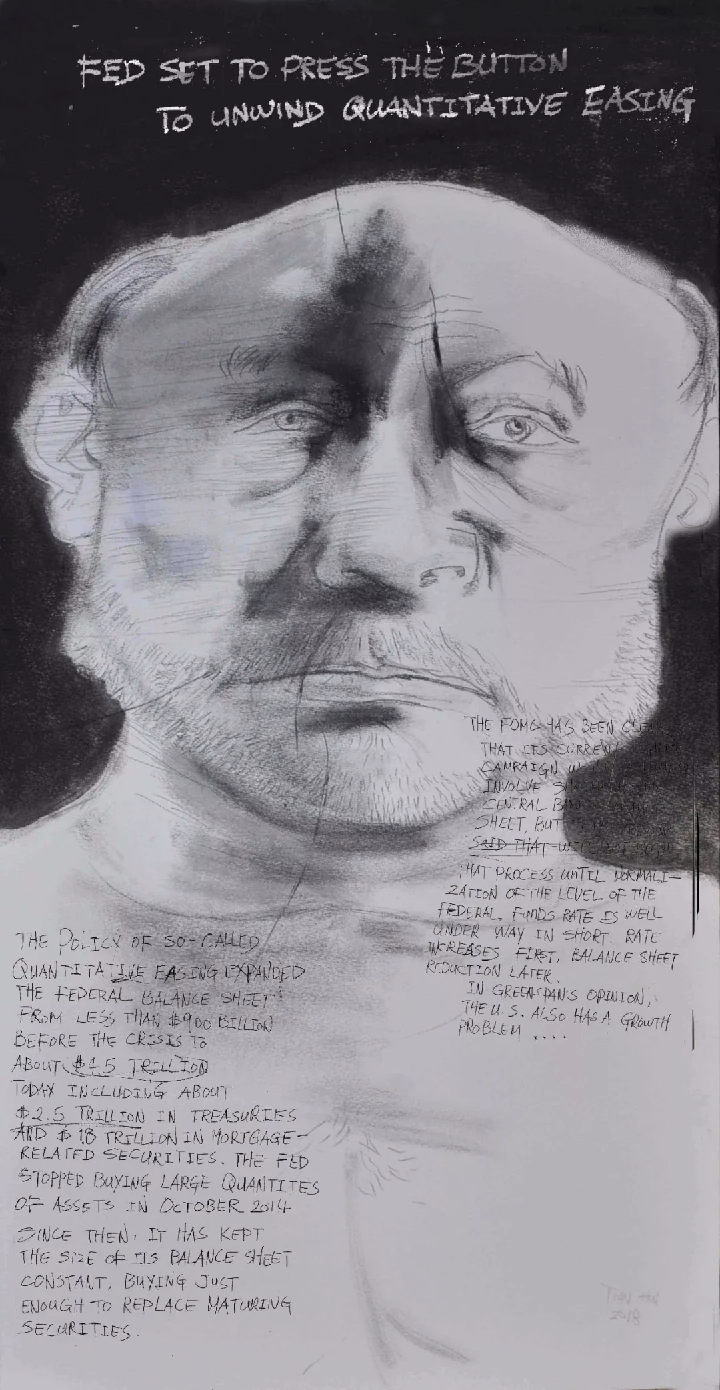 FED SET TO PRESS THE BUTTON
TO UNWIND QUANTITATIVE EASING
THE FOMC HAS BEEN
THAT ITS CURRENT
CAMPAIGN
INVOLVE
CENTRAL
SHEET, BUT
SAID THAT
THAT PROCESS UNTIL NORMALI-
ZATION OF THE LEVEL OF THE
FEDERAL FUNDS RATE IS WELL
UNDER WAY IN SHORT RATE
INCREASES FIRST, BALANCE SHEET
REDUCTION LATER.
IN GREENSPAN'S OPINION,
THE U.S. ALSO HAS A GROWTH
PROBLEM ....
THE POLICY OF SO-CALLED
QUANTITATIVE EASING EXPANDED
THE FEDERAL BALANCE SHEET
FROM LESS THAN $900 BILLION
BEFORE THE CRISIS TO
ABOUT $4.5 TRILLION
TODAY INCLUDING ABOUT
$2.5 TRILLION IN TREASURIES
AND $18 TRILLION IN MORTGAGE-
RELATED SECURITIES. THE FED
STOPPED BUYING LARGE QUANTITES
OF ASSETS IN OCTOBER 2014
SINCE THEN, IT HAS KEPT
THE SIZE OF ITS BALANCE SHEET
CONSTANT, BUYING JUST
ENOUGH TO REPLACE MATURING
SECURITIES.
2018